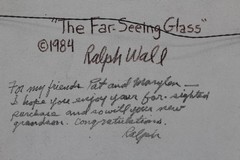 "The Far-Seeing Glass"
©1984
Ralph Wall
For my friends Pat and Marylou —
I hope you enjoy your far-sighted
purchase and so will your new
grandson. Congratulations.
Ralph